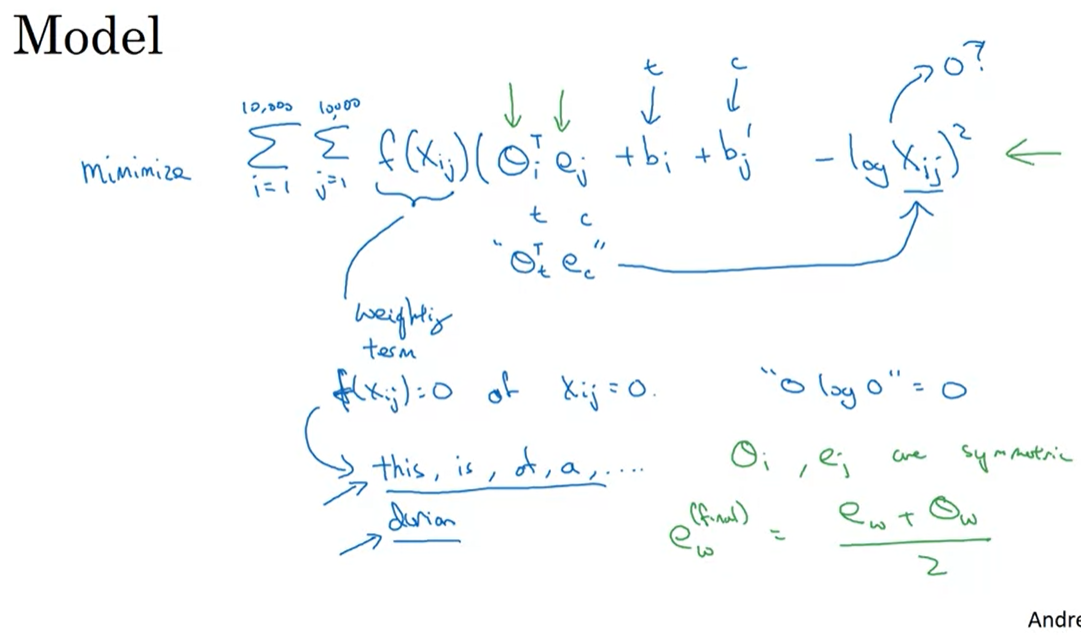 Model
t c 0?
minimize 10,000 ∑ i=1 10,000 ∑ j=1 f(X_ij)(Θ_i^T e_j + b_i + b_j' - log X_ij)^2
t c
"Θ_t^T e_c"
weighting
term
f(X_ij)=0 if X_ij=0. "0 log 0" = 0
this, is, of, a, .... Θ_i, e_j are symmetric
durian e_w^(final) = (e_w + Θ_w)/2
Andre